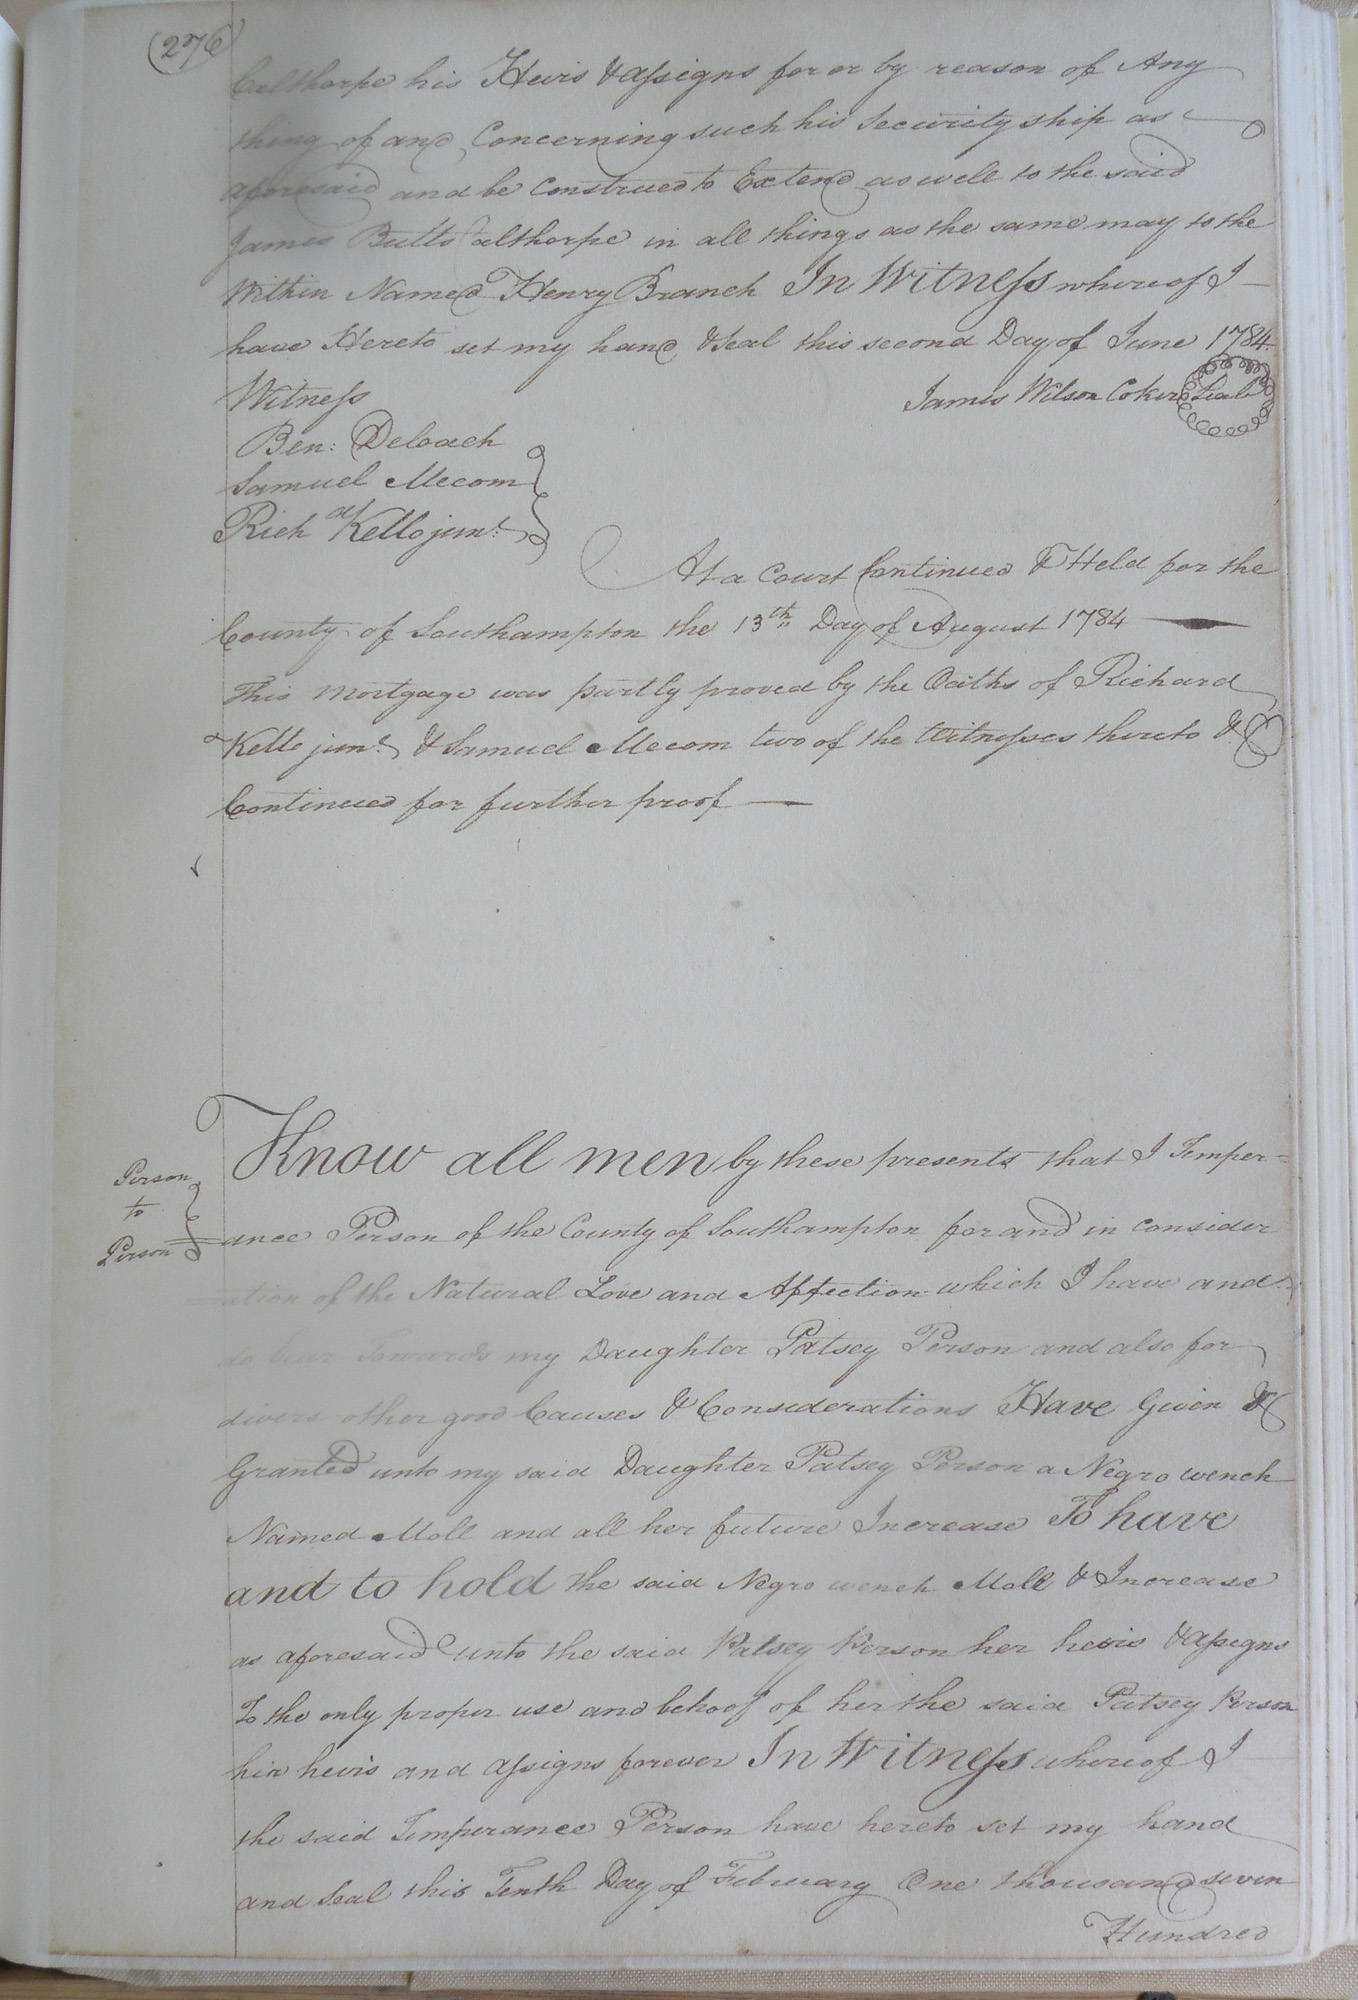 (276)
Calthorpe his Heirs & assigns for or by reason of Any
thing of and Concerning such his Security ship as
aforesaid and be Construed to Extend as well to the said
James Butts Calthorpe in all things as the same may to the
Within Named Henry Branch In Witness whereof I
have Hereto set my hand & Seal this second Day of June 1784.
Witness
James Wilson Coker Seal
Ben: Deloach
Samuel Mecom
Richd Kello junr
At a Court Continued & Held for the
County of Southampton the 13th Day of August 1784
This Mortgage was partly proved by the Oaths of Richard
Kello junr & Samuel Mecom two of the Witnesses thereto &
Continued for further proof
Person
to
Person
Know all men by these presents that I Temper=
ance Person of the County of Southampton for and in consider
=ation of the Natural Love and Affection which I have and
do bear Towards my Daughter Patsey Person and also for
divers other good Causes & Considerations Have Given &
Granted unto my said Daughter Patsey Person a Negro wench
Named Moll and all her future Increase To have
and to hold the said Negro wench Moll & Increase
as aforesaid unto the said Patsey Person her heirs & assigns
To the only proper use and behoof of her the said Patsey Person
her heirs and assigns forever In Witness whereof I
the said Temperance Person have hereto set my hand
and Seal this Tenth Day of February One thousand seven
Hundred